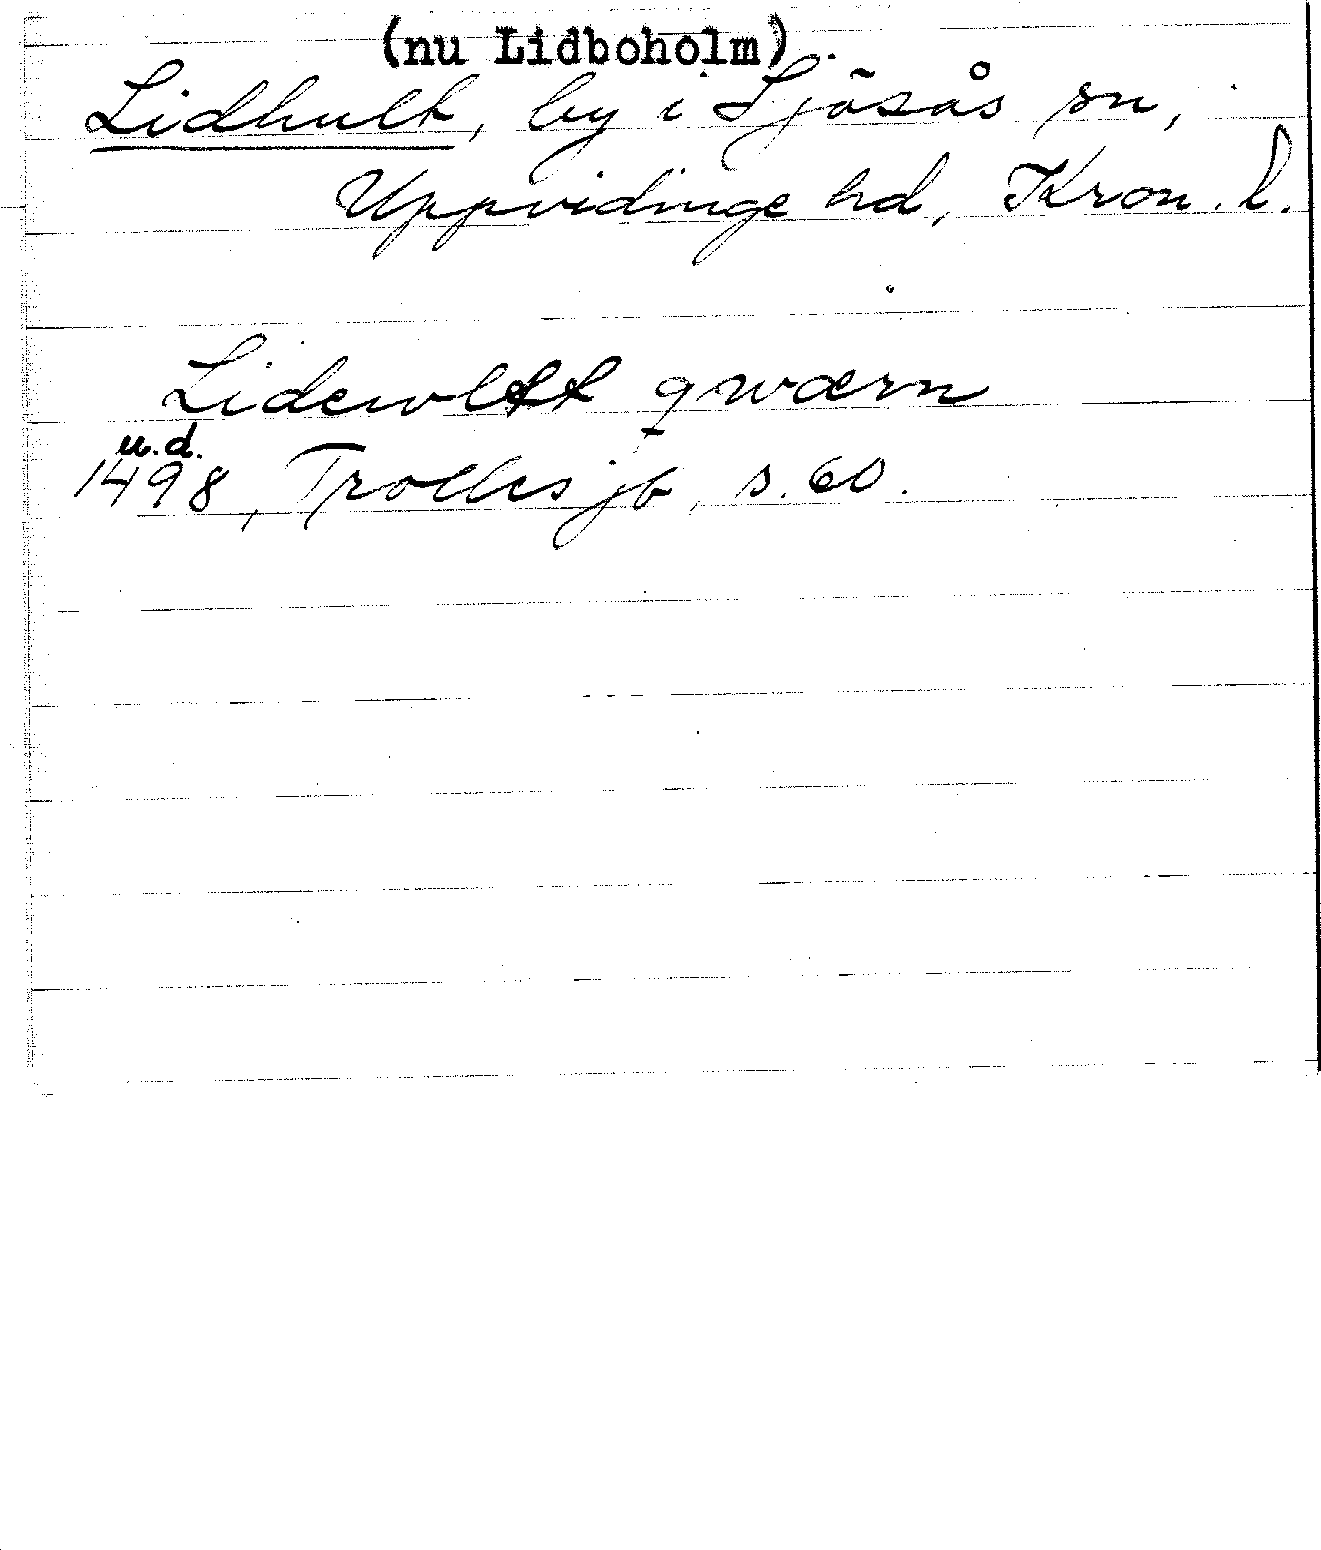 (nu Lidboholm)
Lidhult, by i Sjösås sn,
Uppvidinge hd, Kron. l.
qwærn
u.d.
1498, Trolles jb, s. 60.